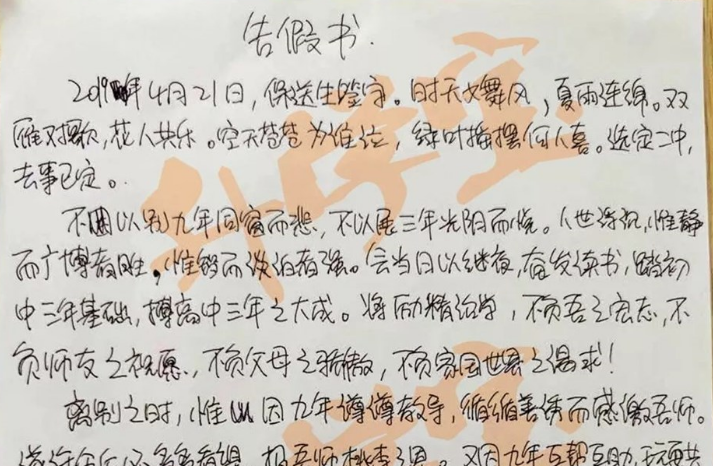 告假书.
2019年4月21日,保送生签字。时天大舞风,夏雨连绵。双
雁对撒欢,花人共乐。空天苍苍为谁泣,绿叶摇摆何人喜。选定二中,
去事已定。
不因以别九年同窗而悲,不以展三年光阴而悦。人世浮沉,惟静
而广博者胜,惟韧而淡泊者强。会当日以继夜,奋发读书,踏初
中三年基础,搏高中三年之大成。将励精治学,不负吾之宏志,不
负师友之祝愿,不负父母之骄傲,不负家国世界之渴求!
离别之时,惟以因九年谆谆教导,循循善诱而感激吾师。
又因九年互帮互助,
升学宝